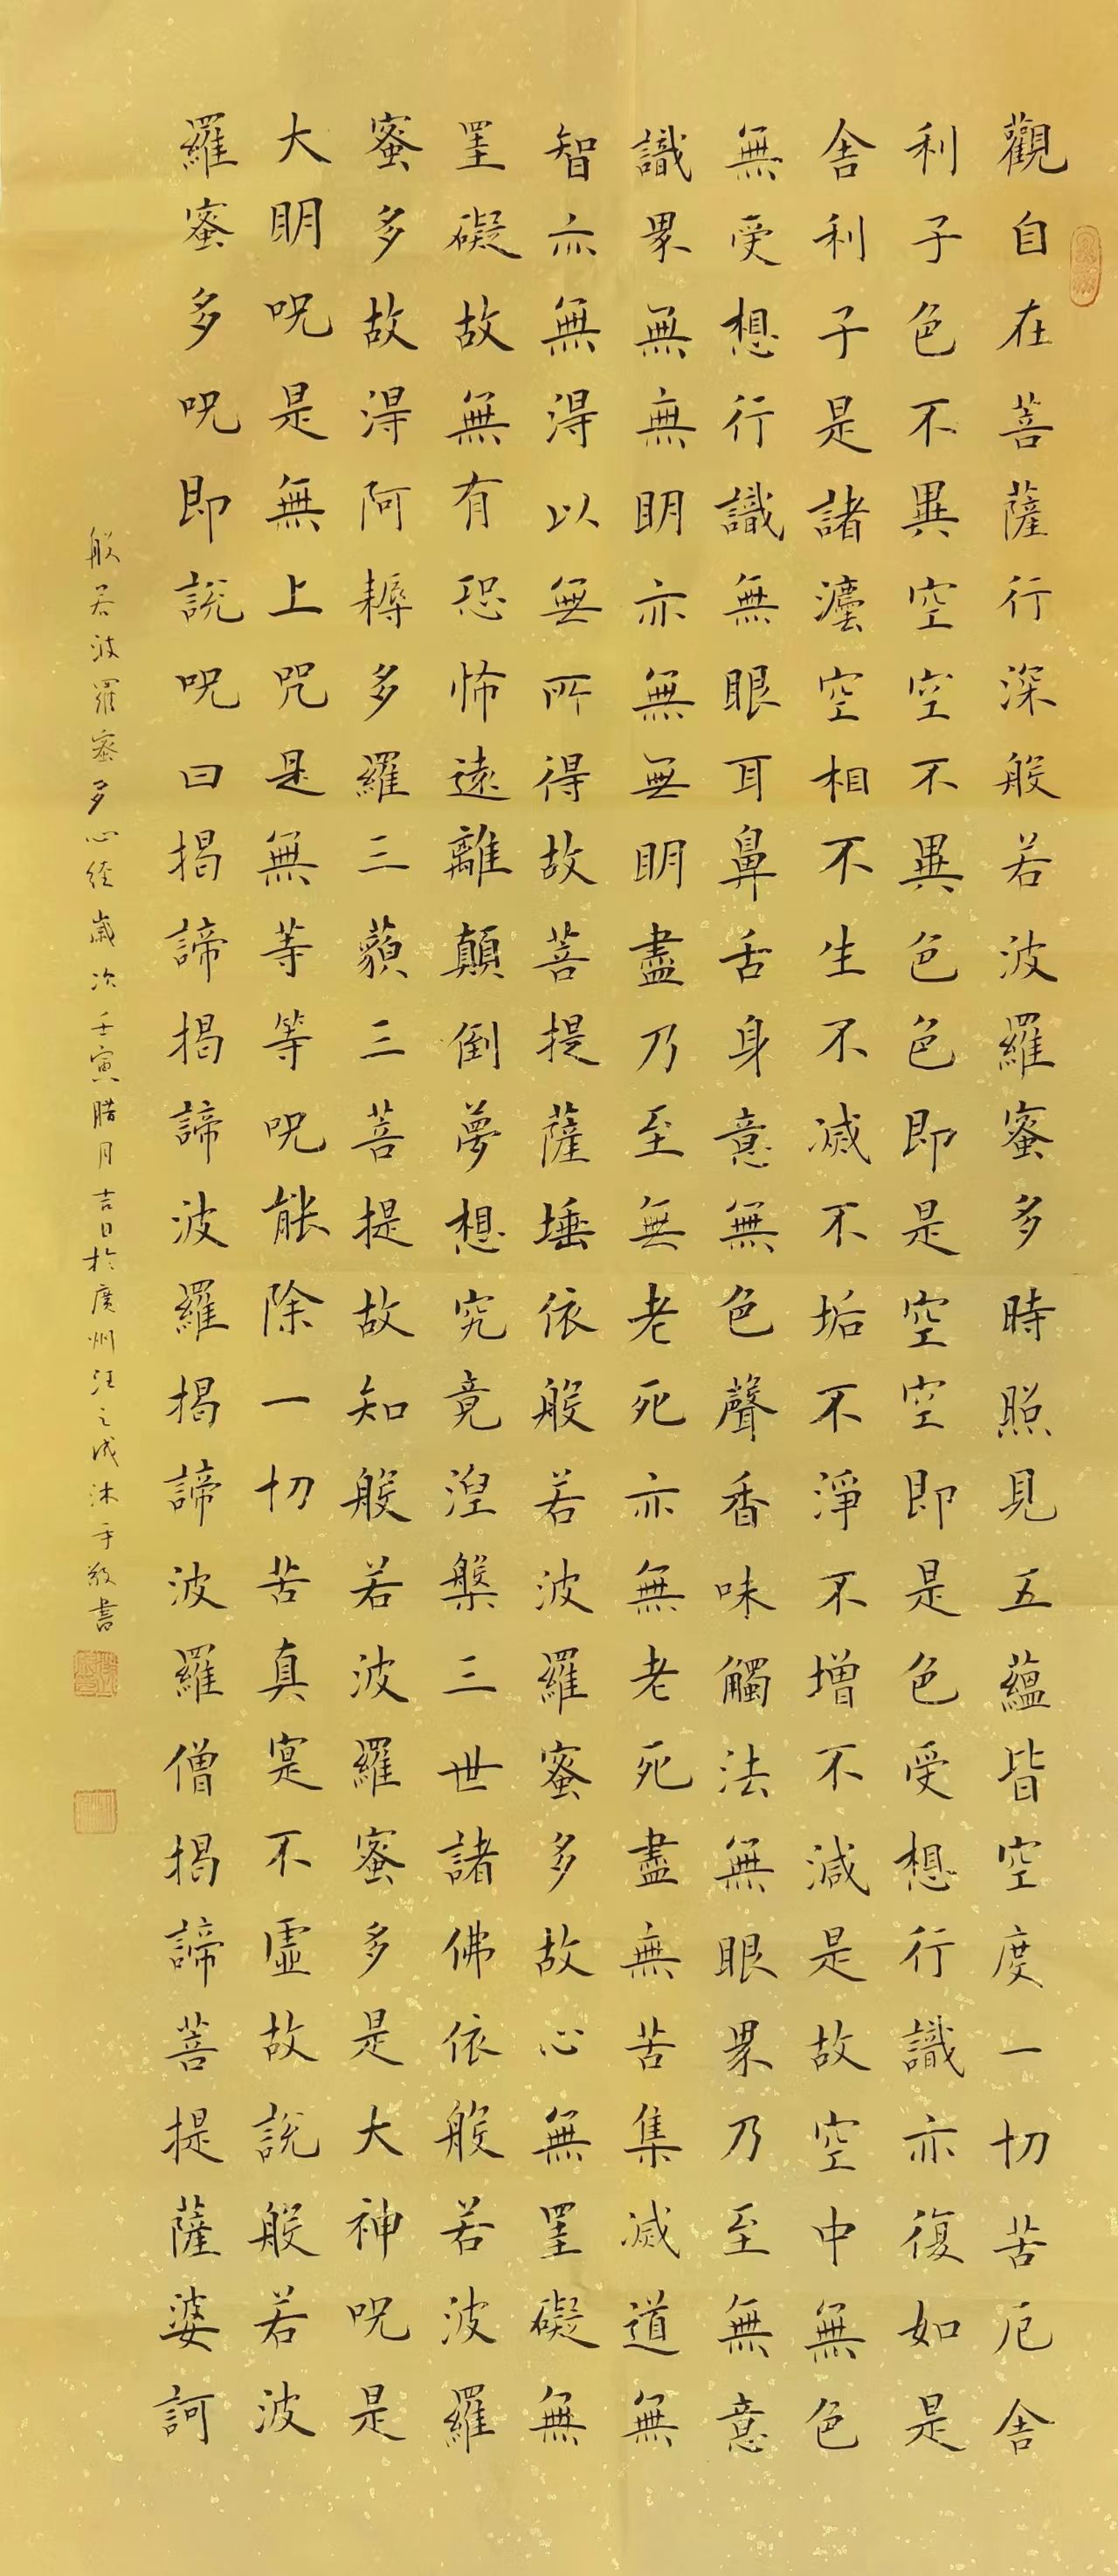 觀自在菩薩行深般若波羅蜜多時照見五蘊皆空度一切苦厄舍
利子色不異空空不異色色即是空空即是色受想行識亦復如是
舍利子是諸法空相不生不滅不垢不淨不增不減是故空中無色
無受想行識無眼耳鼻舌身意無色聲香味觸法無眼界乃至無意
識界無無明亦無無明盡乃至無老死亦無老死盡無苦集滅道無
智亦無得以無所得故菩提薩埵依般若波羅蜜多故心無罣礙無
罣礙故無有恐怖遠離顛倒夢想究竟涅槃三世諸佛依般若波羅
蜜多故得阿耨多羅三藐三菩提故知般若波羅蜜多是大神咒是
大明咒是無上咒是無等等咒能除一切苦真寔不虛故說般若波
羅蜜多咒即說咒曰揭諦揭諦波羅揭諦波羅僧揭諦菩提薩婆訶
般若波羅蜜多心經歲次壬寅腊月吉日於廣州汪之成沐手敬書